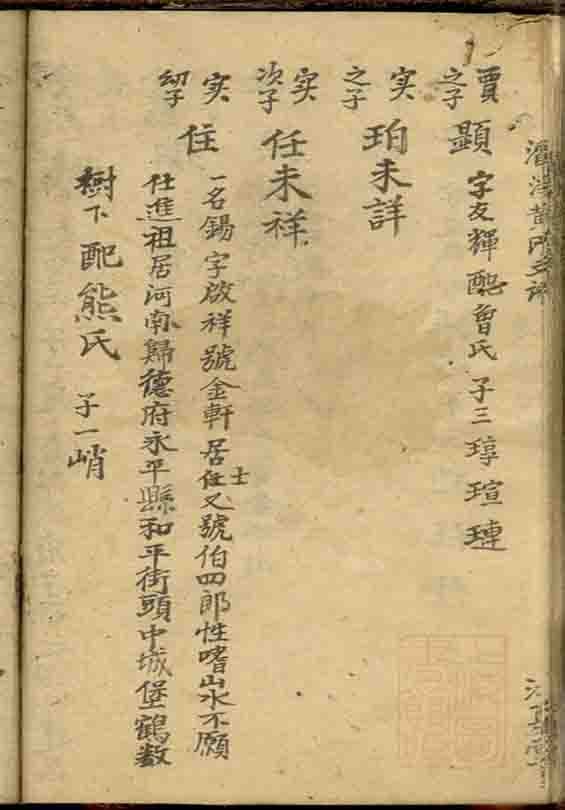 賈之子 顯 字友輝配曾氏 子三 㻳 瑄 璉
实之子 珀未詳
实次子 任未祥
实幼子 住 一名錫字啟祥號金軒居士又號伯四郎性嗜山水不願
仕進祖居河南歸德府永平縣和平街頭中城堡鶴数
樹下配熊氏 子一 峭